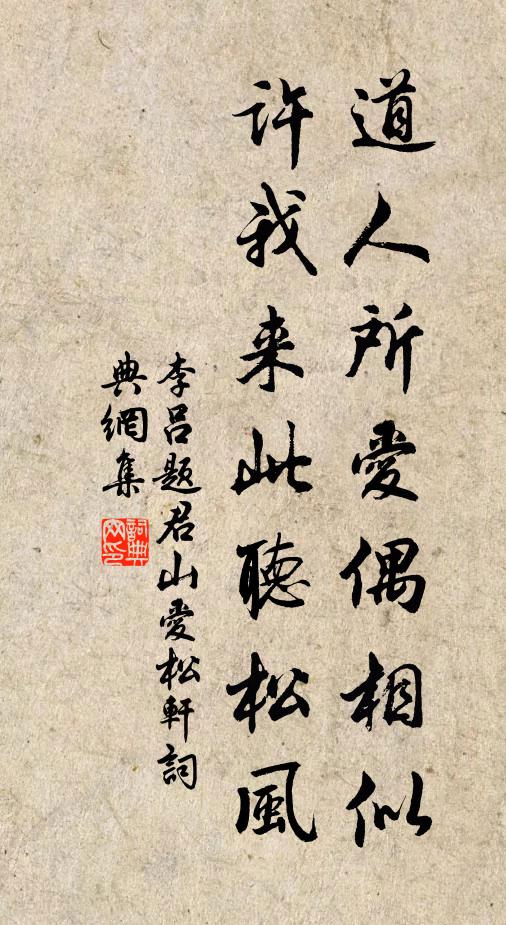 道人所愛偶相似
許我来此聽松風
李呂題君山愛松軒詞
典網集
詞典
网印